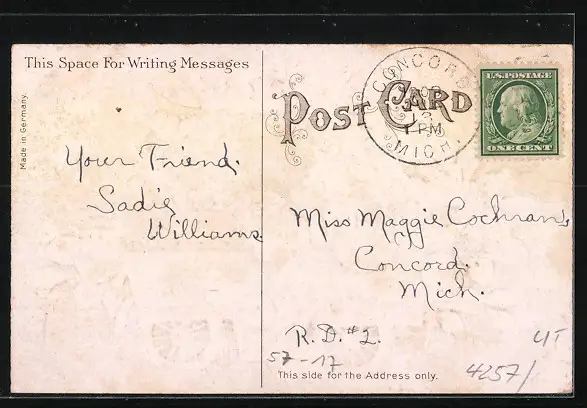 This Space For Writing Messages
Made in Germany.
Your Friend.
Sadie
Williams.
POST CARD
CONCORD
1 PM
MICH.
U.S. POSTAGE
ONE CENT
Miss Maggie Cochran
Concord.
Mich.
R.D. #2.
57-17
This side for the Address only.
4257/